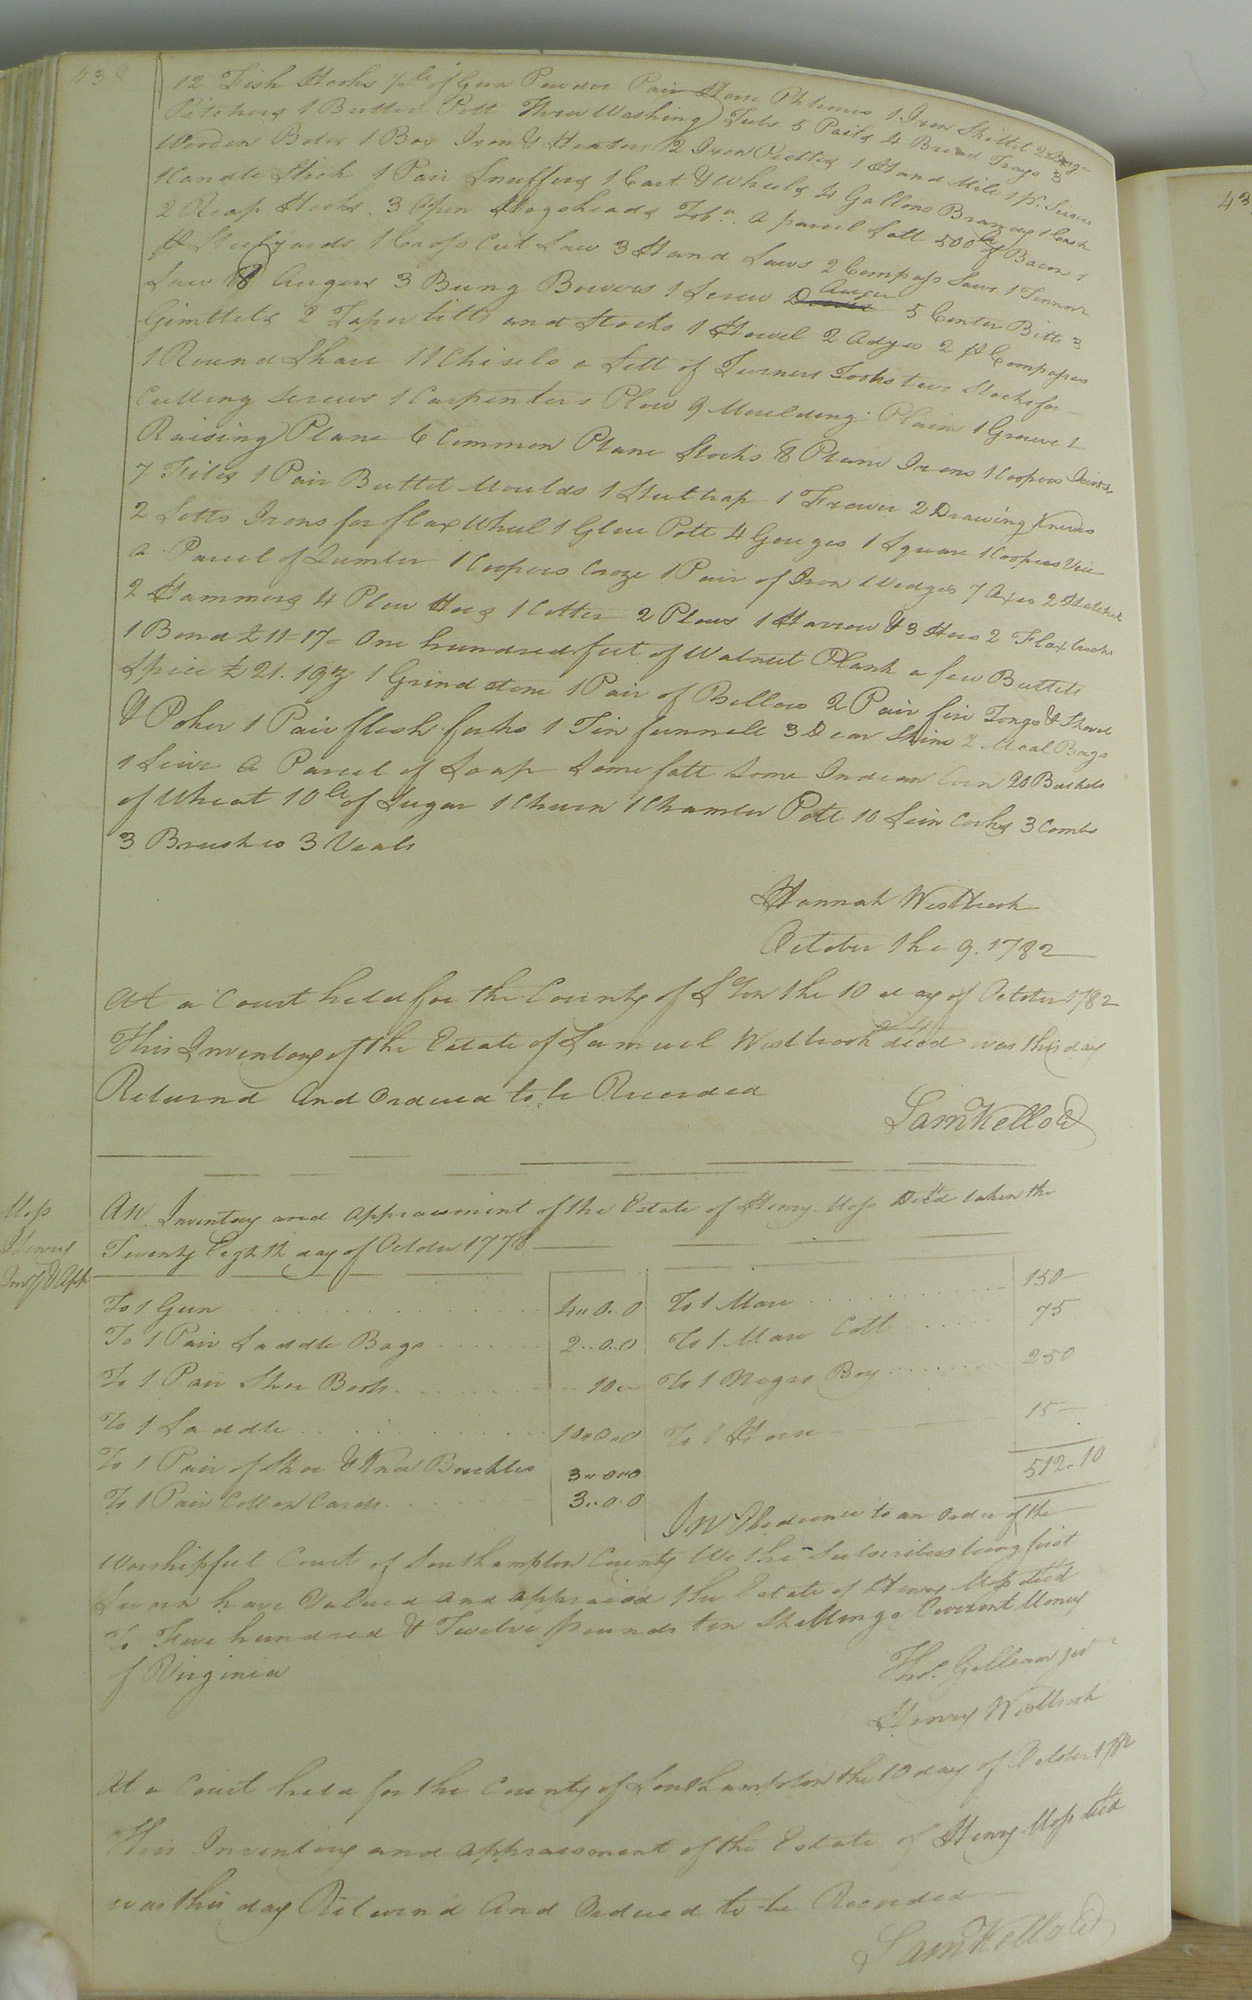 438
12 Fish Hooks ½ lb of Gun Powder Pair Horse Phlemes 1 Iron Skillet 2 Large
Pitchers 1 Butter Pott Three Washing Tubs 5 Pails 4 Bread Trays 3
Wooden Boles 1 Box Iron & Heaters 2 Iron Pestles 1 Hand Mill 1 pr.
1 Candle Stick 1 Pair Snuffers 1 Cart & Wheels 4 Gallons Brandy 1 Cask
2 Reap Hooks 3 Open Hogsheads Tobo. a parcel Salt 500 lb of Bacon 1
pr Steelyards 1 Cross Cut Saw 3 Hand Saws 2 Compass Saws 1 Tennon
Saw 8 Augers 3 Bung Bowers 1 Screw Auger 5 Center Bitts 3
Gimblets 2 Taper bitts and Stocks 1 Howel 2 Adzes 2 pr Compasses
1 Round Shave 11 Chisels a Sett of Turners Tools two Stocks for
Cutting Screws 1 Carpenters Plow 9 Moulding Plains 1 Groove 1
Raising Plane 6 Common Plane Stocks 8 Plane Irons 1 Coopers
7 Files 1 Pair Bullet Moulds 1 Steel trap 1 Frower 2 Drawing Knives
2 Setts Irons for flax Wheel 1 Glue Pott 4 Gouges 1 Square 1 Coopers Vice
a Parcel of Lumber 1 Coopers Croze 1 Pair of Iron Wedges 7 Axes 2 Hatchet
2 Hammers 4 Plow Hoes 1 Cotter 2 Plows 1 Harrow & 3 Hoes 2 Flax
1 Bond £ 11-17- One hundred feet of Walnut Plank a few Bullets
Specie £ 21. 19 1 Grindstone 1 Pair of Bellows 2 Pair fire Tongs & Shovel
& Poker 1 Pair flesh forks 1 Tin funnell 3 Dear Skins 2 Meal Bags
1 Sieve A Parcel of Soap Some fatt Some Indian Corn 20 Bushels
of Wheat 10 lb of Sugar 1 Churn 1 Chamber Pott 10 Corks 3 Combs
3 Brushes 3 Vials
Hannah Westbrook
October the 9. 1782
At a Court held for the County of S'ton the 10 day of October 1782
This Inventory of the Estate of Samuel Westbrook decd was this day
Returnd And Ordered to be Recorded
Sam Kello Cl
Moss
Henry
Invy & App
An Inventory and Appraisment of the Estate of Henry Moss Decd taken the
Twenty Eighth day of October 1778
To 1 Gun 4..0..0 To 1 Mare 150—
To 1 Pair Saddle Bags 2..0.0 To 1 Mare Colt 75
To 1 Pair Shoe Boots 10 To 1 Negro Boy 250
To 1 Saddle To 1 Horse 15—
To 1 Pair of Shoe & Knee Buckles 3..0..0 512..10
To 1 Pair Cotton Cards 3..0.0
In Obedience to an Order of the
Worshipful Court of Southampton County We the Subscribers being first
Sworn have Valued and appraisd the Estate of Henry Moss decd
To Five hundred & Twelve Pounds ten Shillings Current Money
of Virginia
Thos. Gilliam jur
Henry Westbrook
At a Court held for the County of Southampton the 10 day of October 1782
This Inventory and appraisement of the Estate of Henry Moss decd
was this day Returnd And Ordered to be Recorded
Sam Kello Cl
43